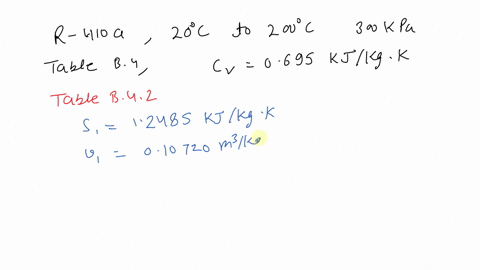 R-410a, 20°C to 200°C 300 KPa
Table B.4, Cv = 0.695 KJ/Kg.K
Table B.4.2
S1 = 1.2485 KJ/Kg.K
υ1 = 0.10720 m³/Kg